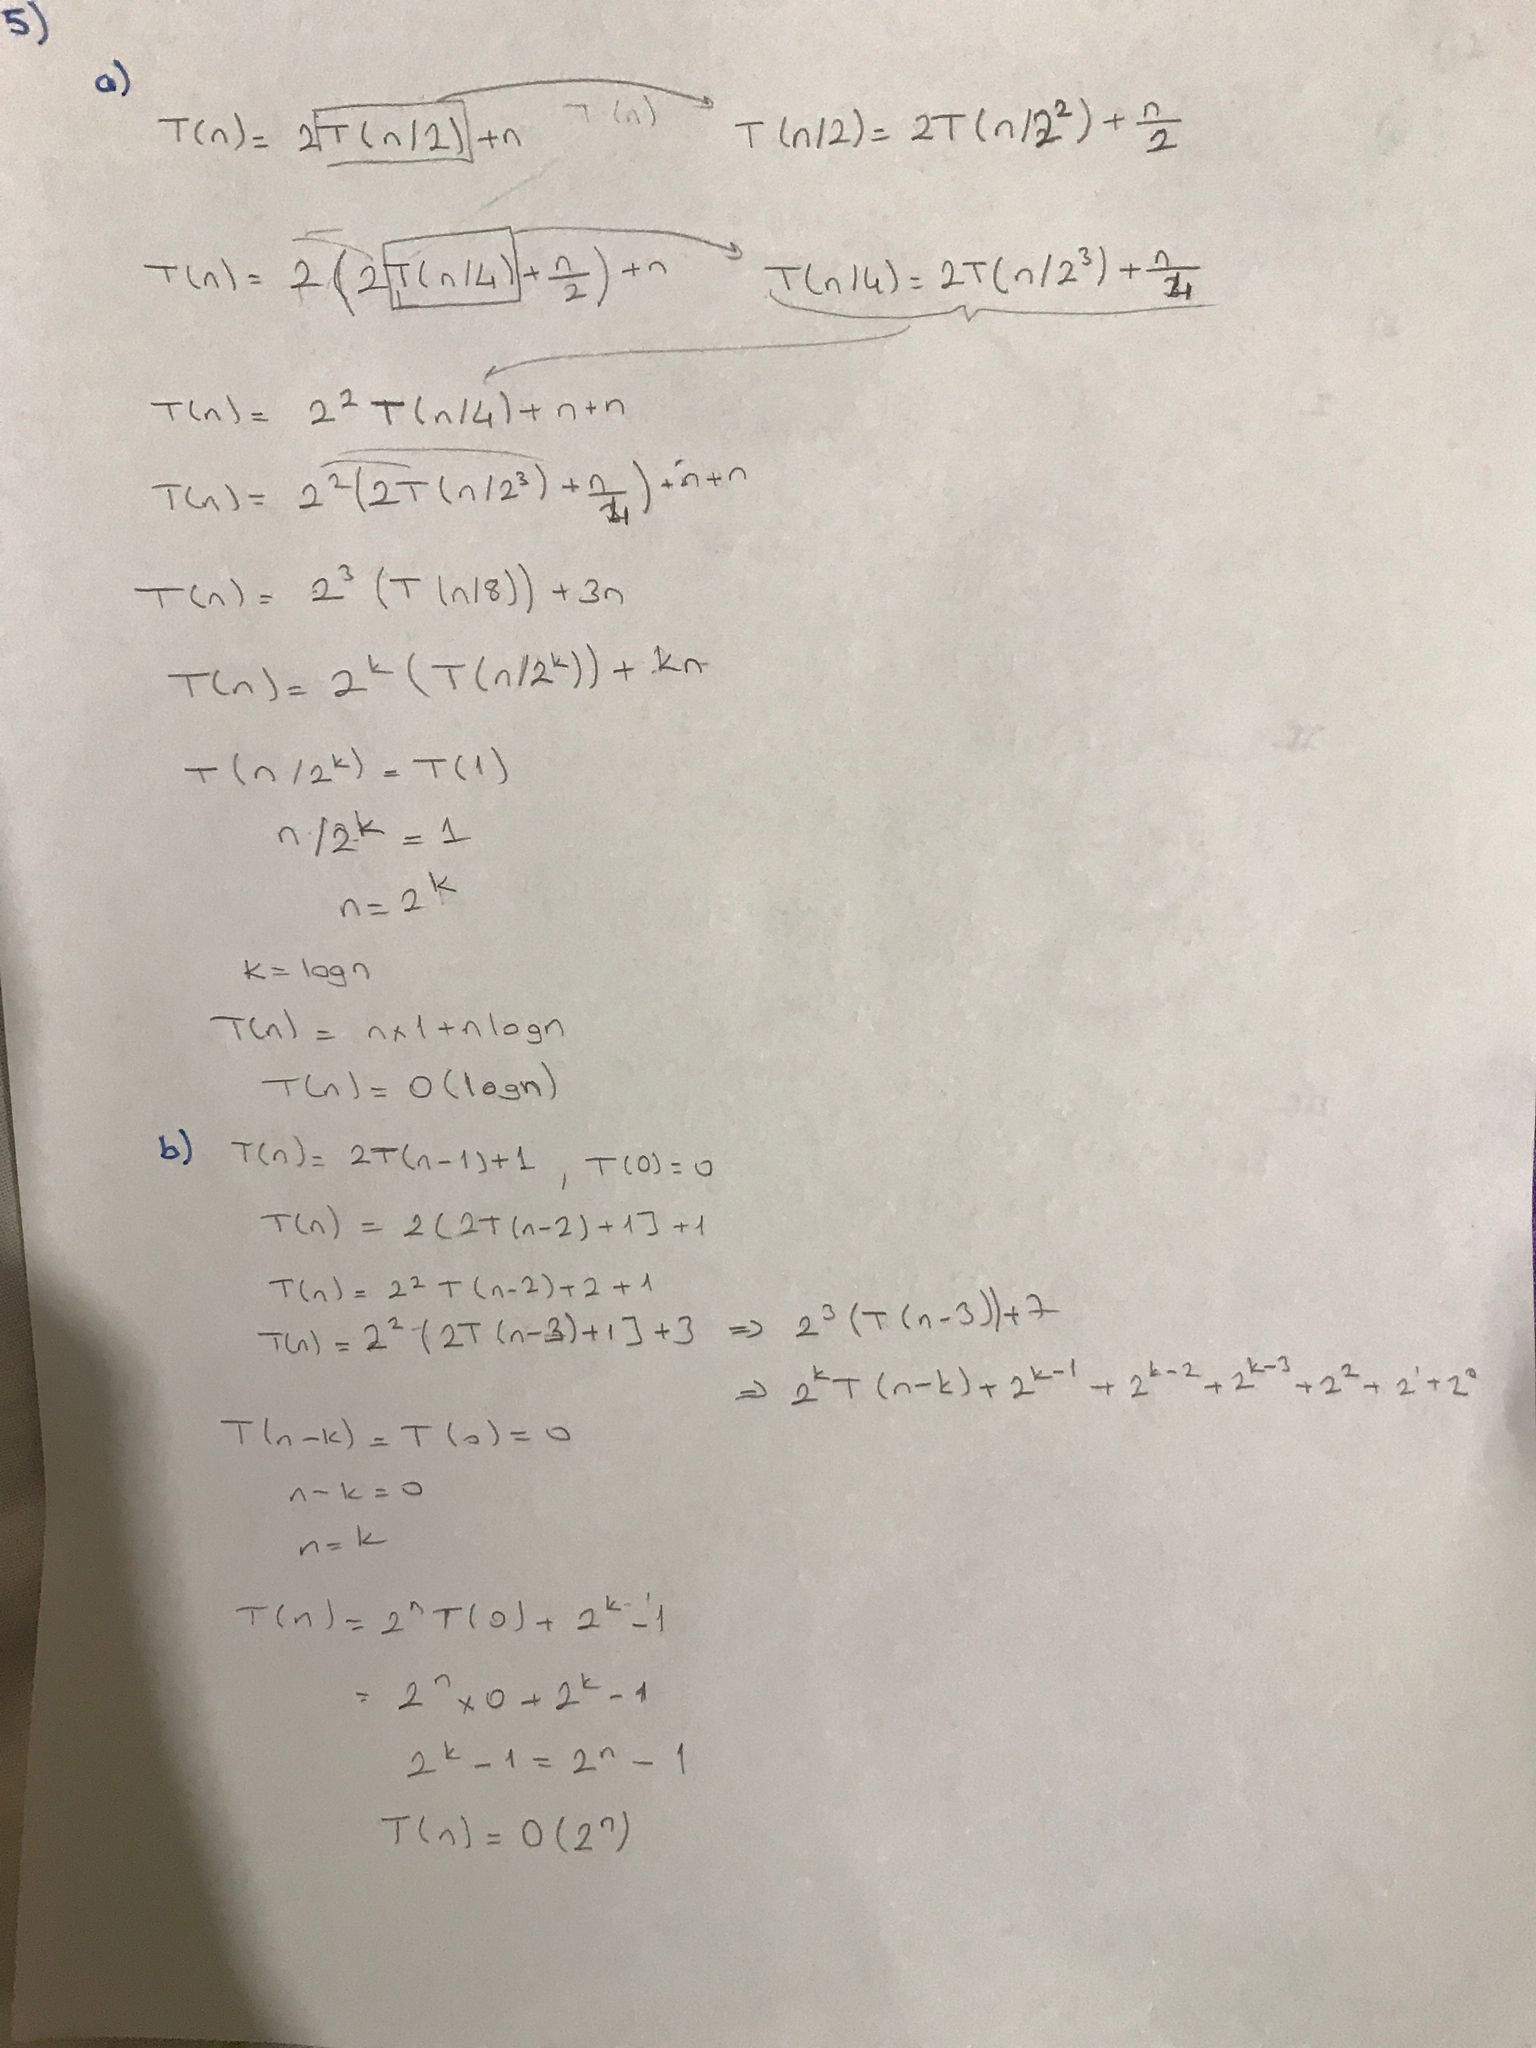 5)
a)
T(n) = 2T(n/2)+n T(n) T(n/2) = 2T(n/2²) + n/2
T(n) = 2(2T(n/4) + n/2) + n T(n/4) = 2T(n/2³) + n/4
T(n) = 2² T(n/4) + n+n
T(n) = 2²(2T(n/2³) + n/4) + n + n
T(n) = 2³ (T(n/8)) + 3n
T(n) = 2ᵏ (T(n/2ᵏ)) + kn
T(n/2ᵏ) = T(1)
n/2ᵏ = 1
n = 2ᵏ
k = logn
T(n) = n×1+nlogn
T(n) = O(logn)
b) T(n) = 2T(n-1)+1 , T(0) = 0
T(n) = 2(2T(n-2)+1]+1
T(n) = 2² T(n-2)+2+1
T(n) = 2² (2T(n-3)+1]+3 ⇒ 2³ (T(n-3))+7
⇒ 2ᵏT(n-k) + 2ᵏ⁻¹ + 2ᵏ⁻² + 2ᵏ⁻³ + 2² + 2¹ + 2⁰
T(n-k) = T(0) = 0
n-k = 0
n = k
T(n) = 2ⁿT(0) + 2ᵏ-1
= 2ⁿ×0 + 2ᵏ-1
2ᵏ-1 = 2ⁿ-1
T(n) = O(2ⁿ)